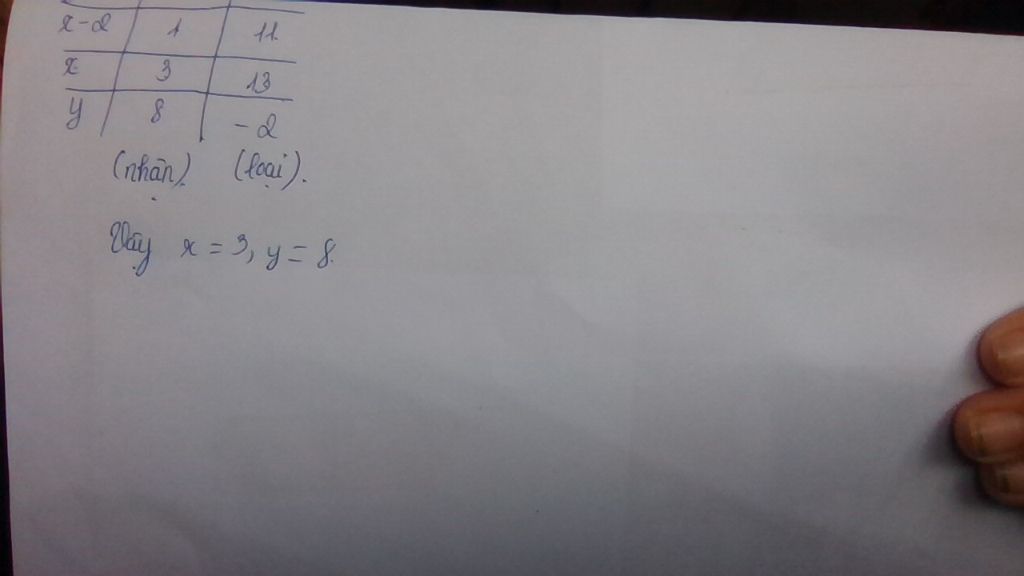 x-2 1 11
x 3 13
y 8 -2
(nhận). (loại).
Vậy x = 3, y = 8.